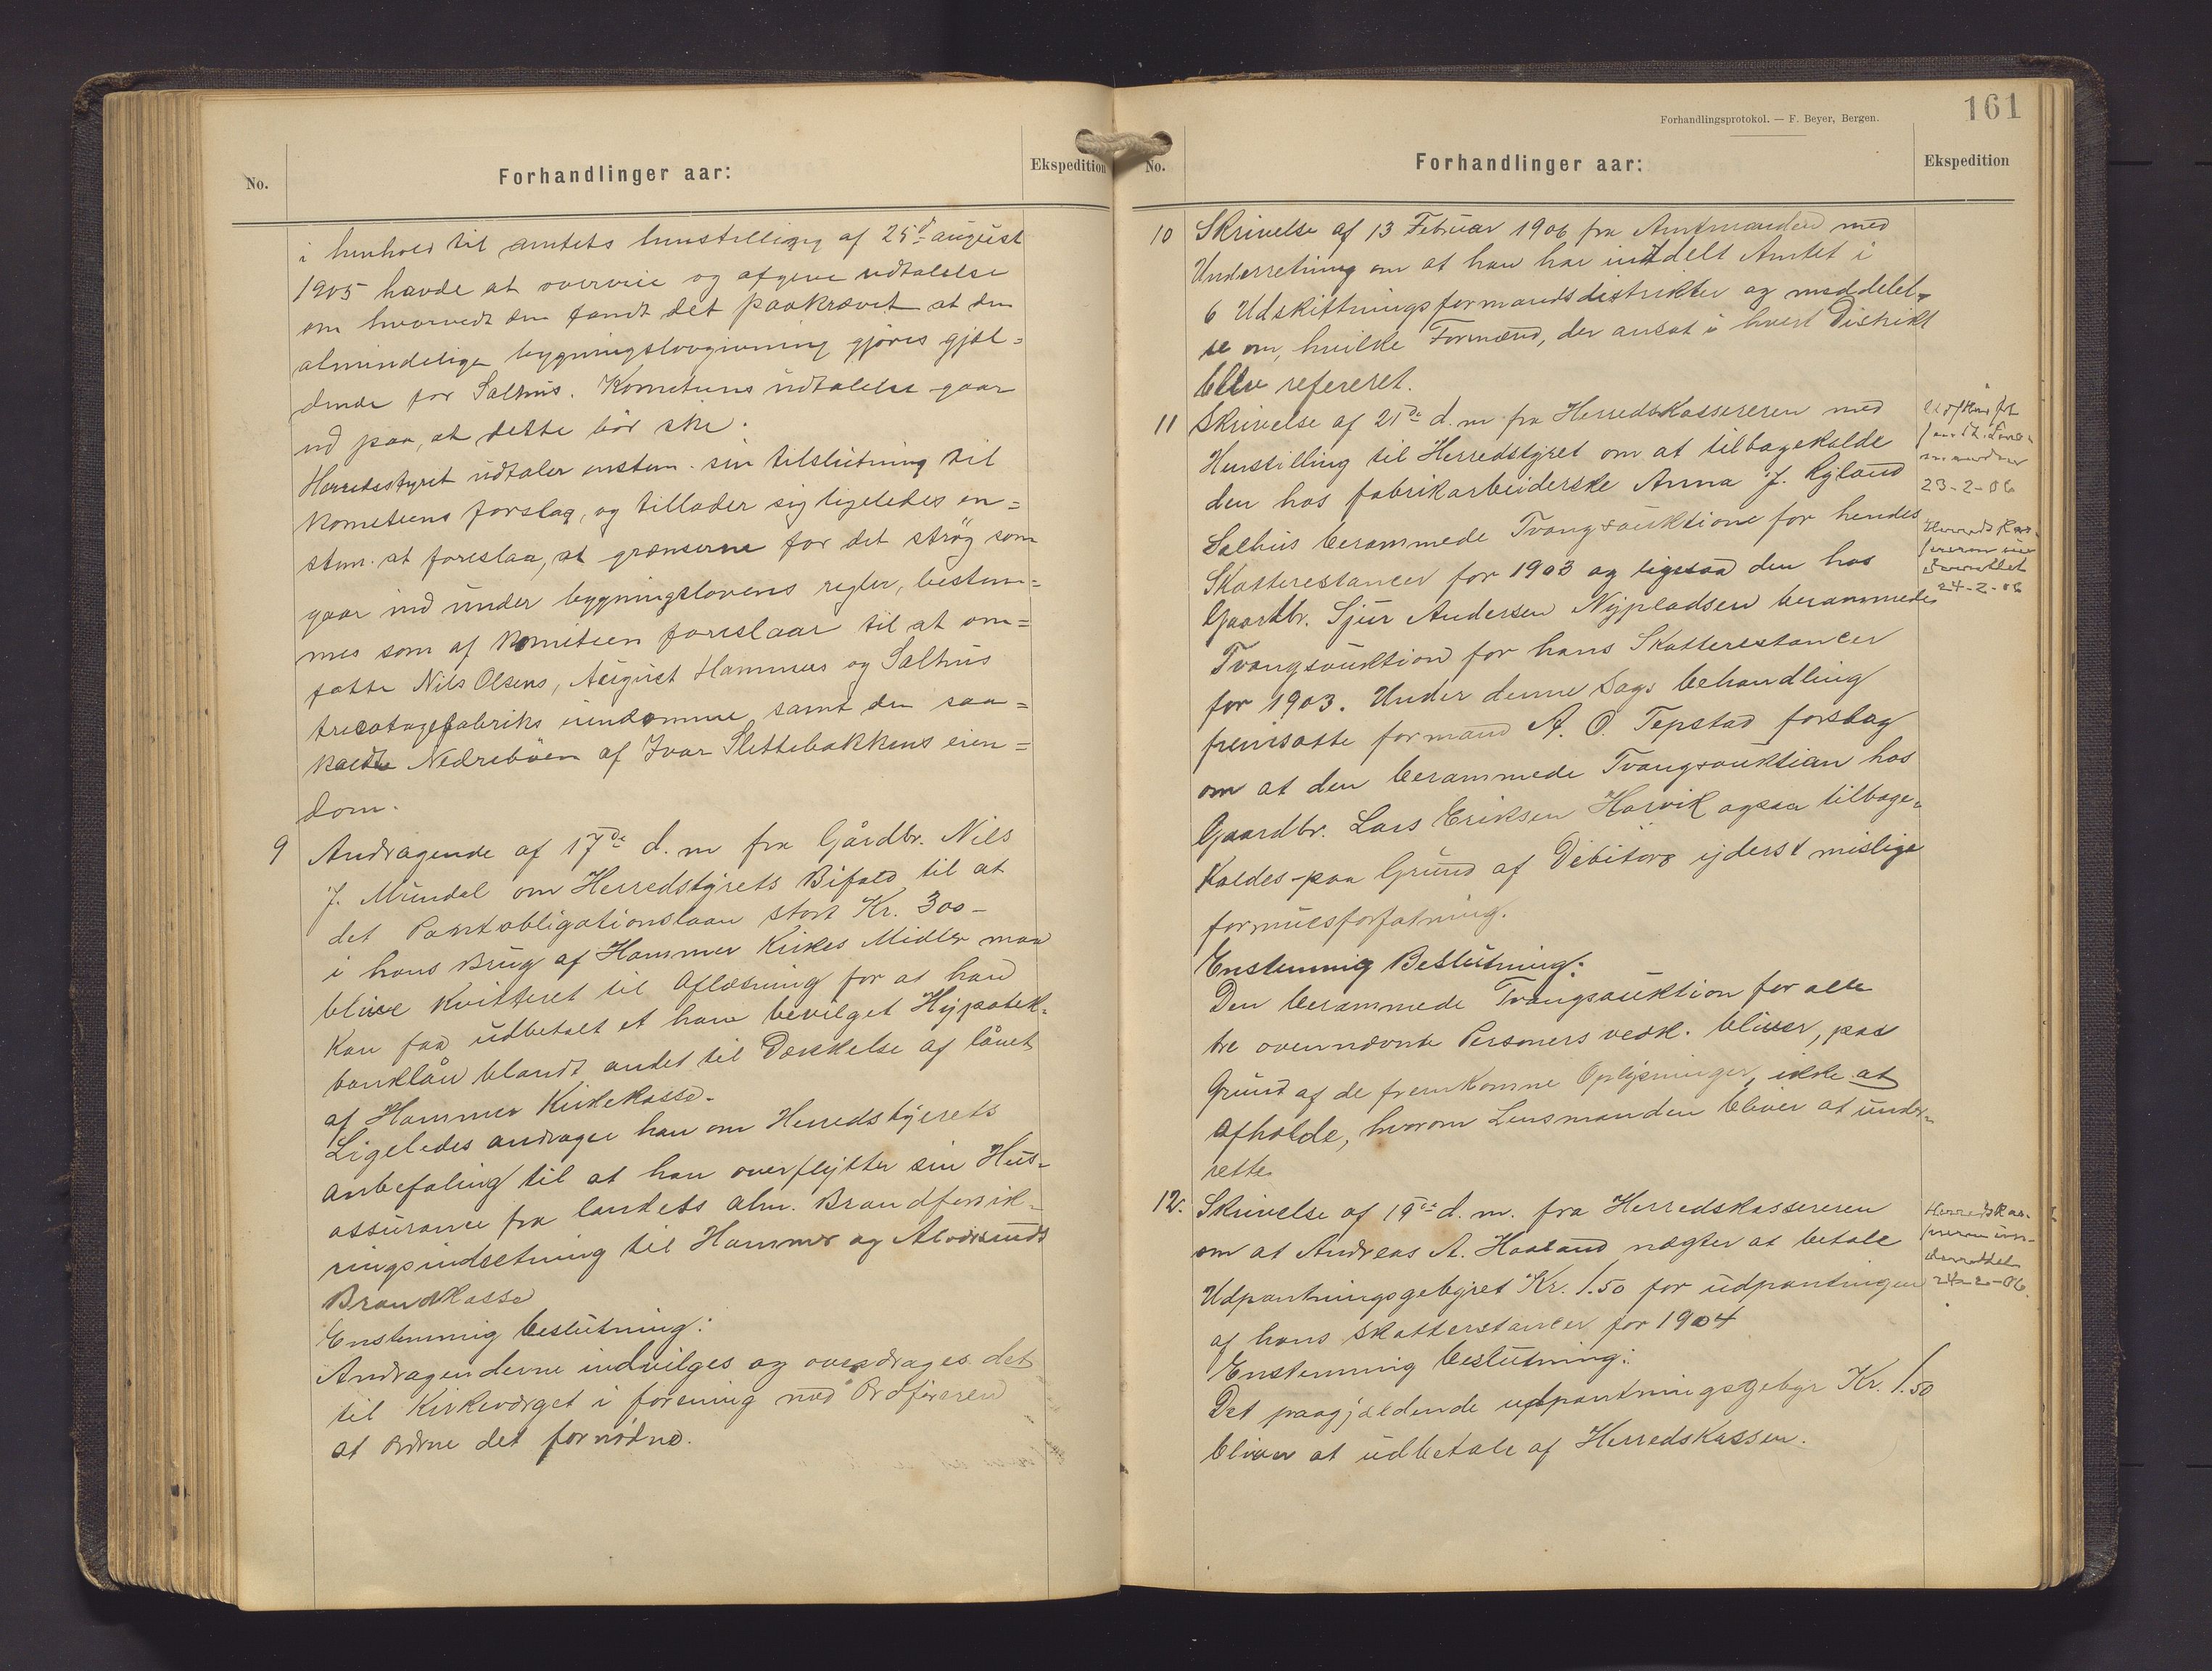 No.
Forhandlinger aar:
Ekspedition
i henhold til amtets henstilling af 25d august
1905 havde at overveie og afgive udtalelse
om hvorvidt den fandt det paakrævet at den
almindelige bygningslovgivning gjøres gjæl=
dende for Salhus. Kometeens udtalelse gaar
ud paa, at dette bör ske.
Herredsstyret udtaler enstem. sin tilslutning til
kometeens forslag, og tillader sig ligeledes en=
stem. at foreslaa, at grænserne for det strög som
gaar ind under bygningslovens regler, bestem=
mes som af kometeen foreslaar til at om=
fatte Nils Olsens, August Hammers og Salhus
tricotagefabriks eiendomme samt den saa=
kaldte Nedreböen af Ivar Slettebakkens eien=
dom.
9 Andragende af 17de d.m fra Gårdbr. Nils
J. Mundal om Herredstyrets Bifald til at
det Pantobligationslaan stort Kr. 300-
i hans Brug af Hammer Kirkes Midler maa
blive kvitteret til Aflæsning for at han
kan faa udbetalt et ham bevilget Hypotek-
banklån blandt andet til Dækkelse af lånet
af Hammer Kirkekasse.
Ligeledes andrager han om Herredstyrets
anbefaling til at han overflytter sin Hus-
assurance fra landets alm. Brandforsik-
ringsindretning til Hammer og Alversunds
Brandkasse
Enstemmig beslutning:
Andragenderne indvilges og overdrages det
til Kirkeværget i forening med Ordføreren
at ordne det fornødne.
Forhandlingsprotokol. — F. Beyer, Bergen.
161
No.
Forhandlinger aar:
Ekspedition
10 Skrivelse af 13 Februar 1906 fra Amtmanden med
Underretning om at han har inddelt Amtet i
6 Udskiftningsformandsdistrikter og meddelel-
se om, hvilke Formænd, der ansat i hvert Distrikt
blev refereret.
11 Skrivelse af 21de d.m fra Herredskassereren med
Henstilling til Herredstyret om at tilbagekalde
den hos fabrikarbeiderske Anna J. Ryland
Salhus berammede Tvangsauktione for hendes
Skatterestancer for 1903 og ligesaa den hos
Gaardbr. Sjur Andersen Nypladsen berammede
Tvangsauktion for hans Skatterestancer
for 1903. Under denne Sags behandling
fremsatte formand A. O. Tepstad forslag
om at den berammede Tvangsauktian hos
Gaardbr. Lars Eriksen Horvik ogsaa tilbage-
kaldes paa Grund af Debitors yderst mislige
formuesforfatning.
Enstemmig Beslutning:
Den berammede Tvangsauktion for alle
tre ovennævnte Personers vedk. bliver, paa
Grund af de fremkomne Oplysninger, ikke at
afholde, hvorom Lensmanden bliver at under-
rette
23-2-06
Herredskas-
sereren un
derrettet
24-2-06
12. Skrivelse af 19de d.m. fra Herredskassereren
om at Andreas A. Haaland nægter at betale
Udpantningsgebyret Kr. 1.50 for udpantningen
af hans skatterestancer for 1904
Enstemmig beslutning:
Det paagjældende udpantningsgebyr Kr. 1.50
bliver at udbetale af Herredskassen.
Herredskas-
sereren un-
derrettet
24-2-06.